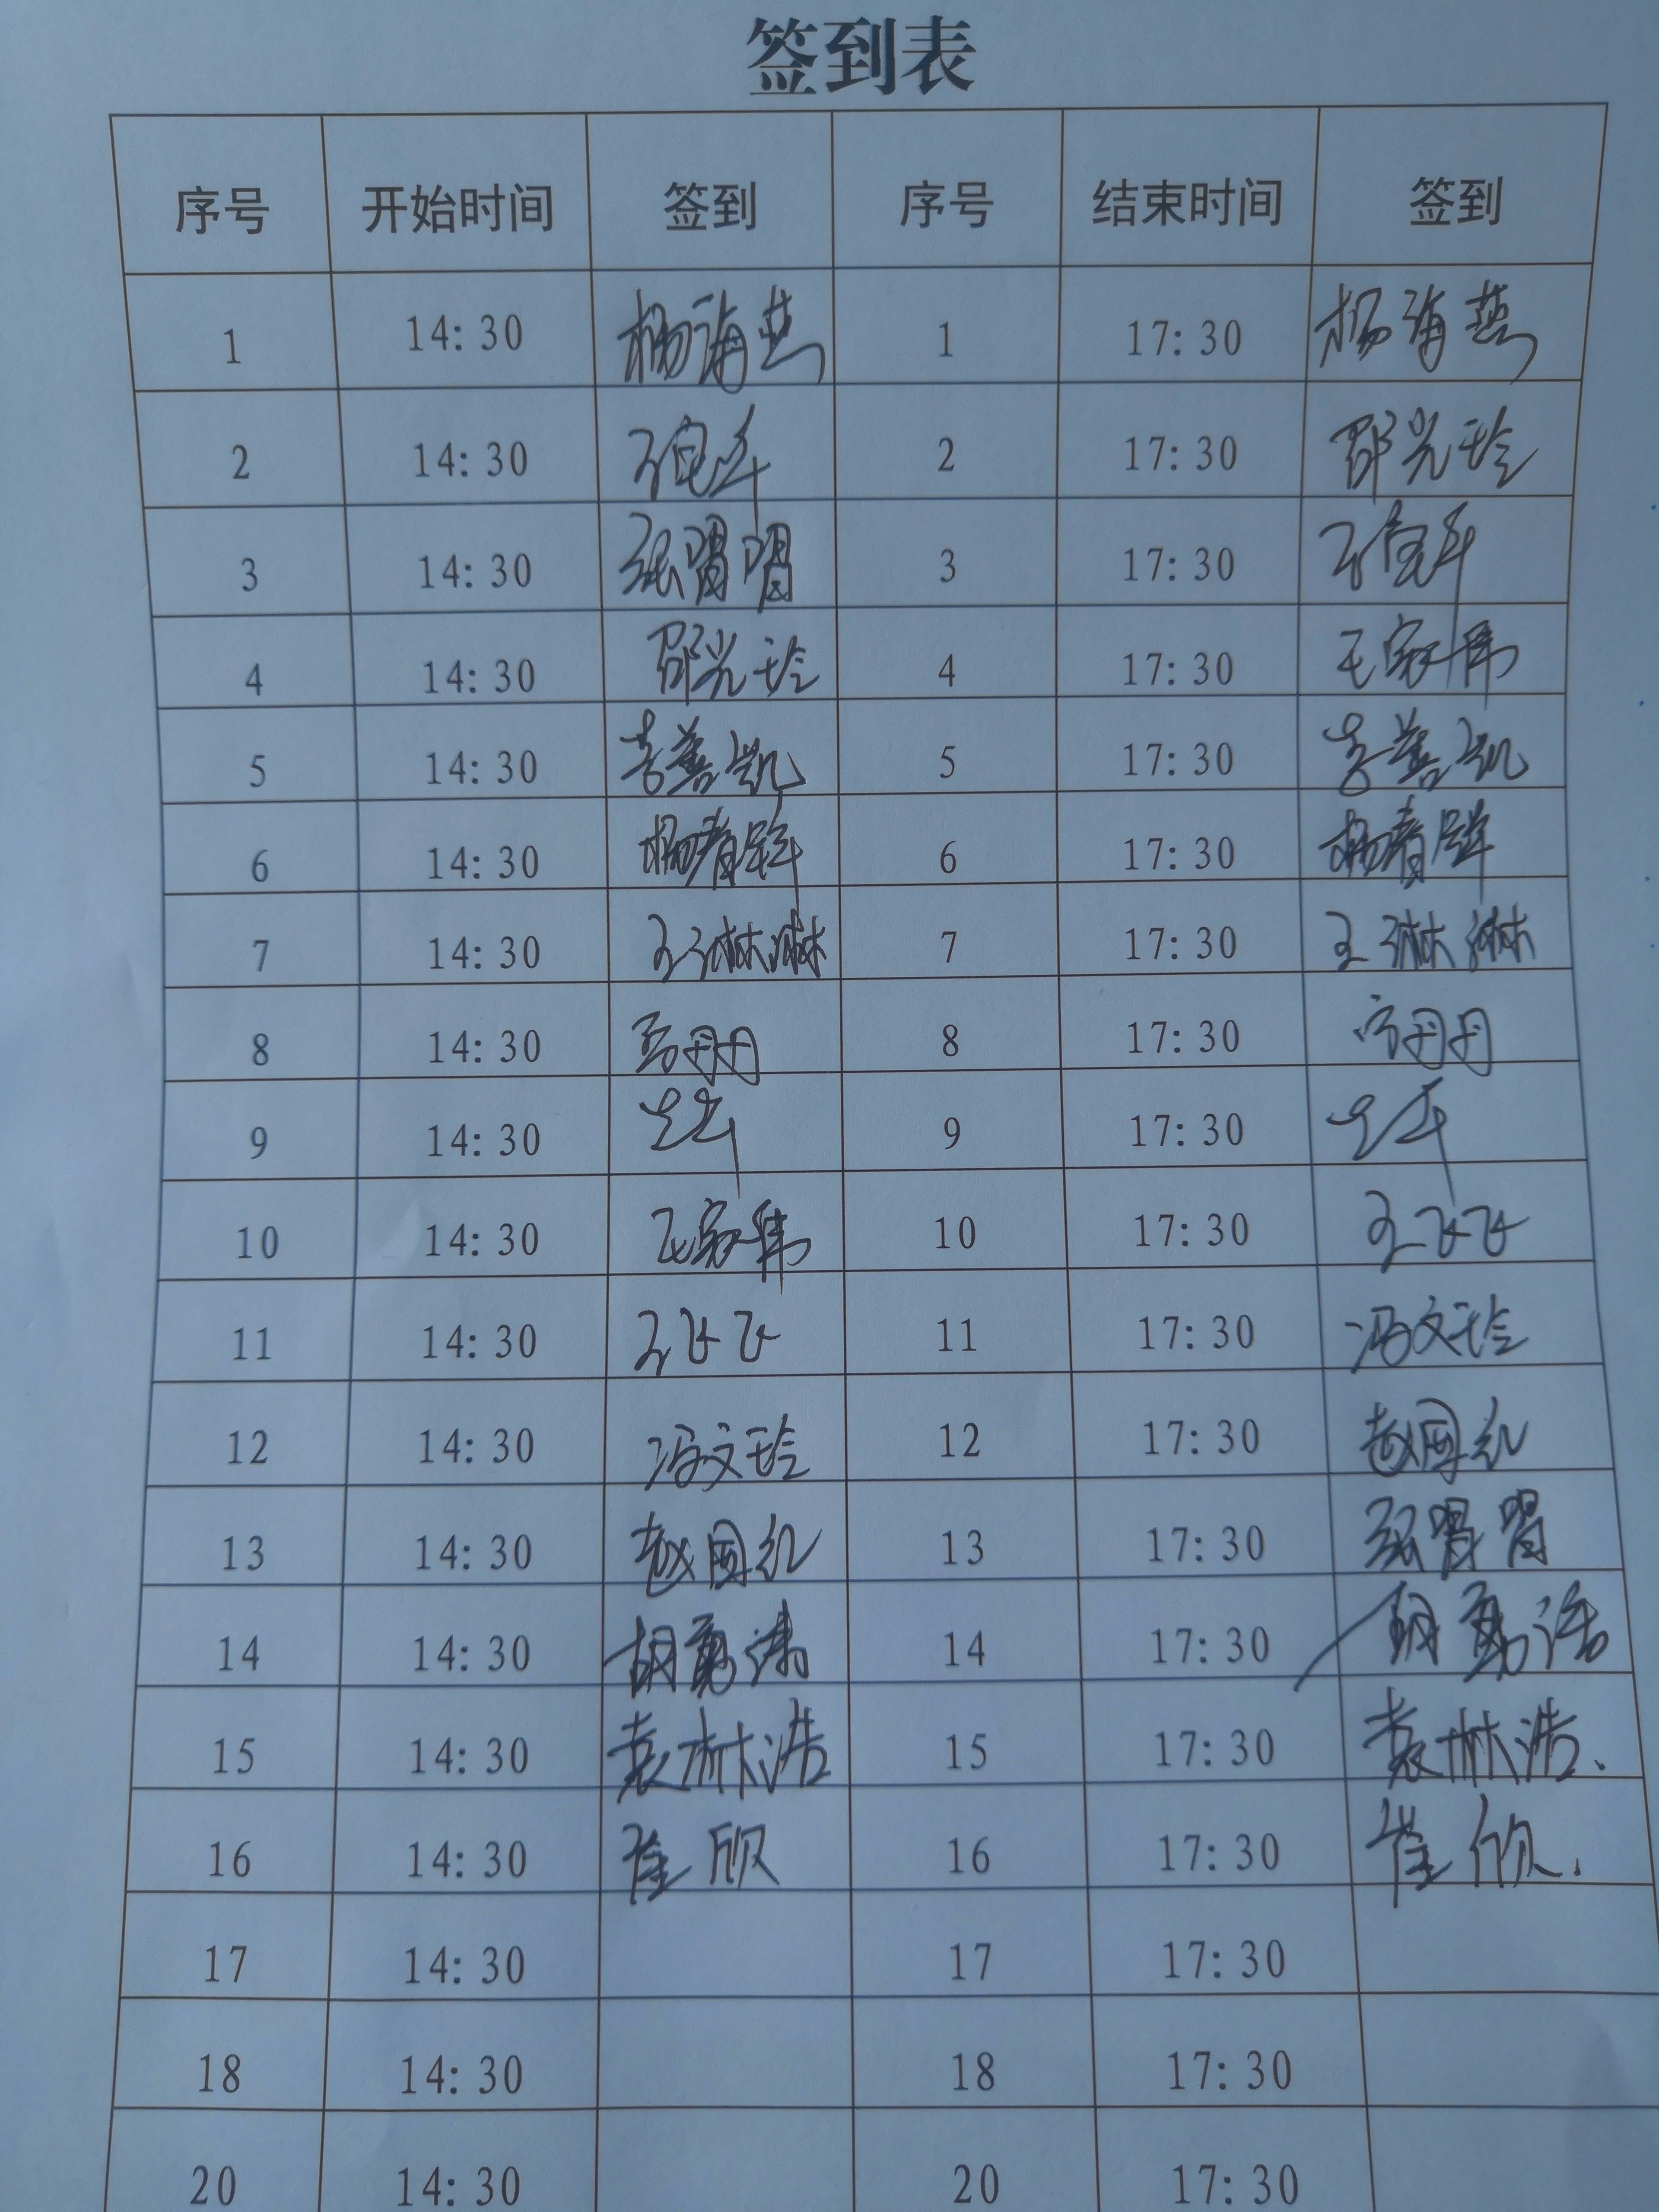 签到表
序号 开始时间 签到 序号 结束时间 签到
1 14:30 杨海燕 1 17:30 杨海燕
2 14:30 2 17:30 邵光玲
3 14:30 张 3 17:30
4 14:30 邵光玲 4 17:30 王家伟
5 14:30 李善凯 5 17:30 李善凯
6 14:30 杨青 6 17:30 杨青
7 14:30 王淋淋 7 17:30 王淋淋
8 14:30 丹丹 8 17:30 丹丹
9 14:30 9 17:30
10 14:30 王家伟 10 17:30 王飞飞
11 14:30 王飞飞 11 17:30 冯文玲
12 14:30 冯文玲 12 17:30 赵国红
13 14:30 赵国红 13 17:30 张
14 14:30 胡 14 17:30 胡
15 14:30 袁林浩 15 17:30 袁林浩
16 14:30 崔欣 16 17:30 崔欣
17 14:30 17 17:30
18 14:30 18 17:30
20 14:30 20 17:30